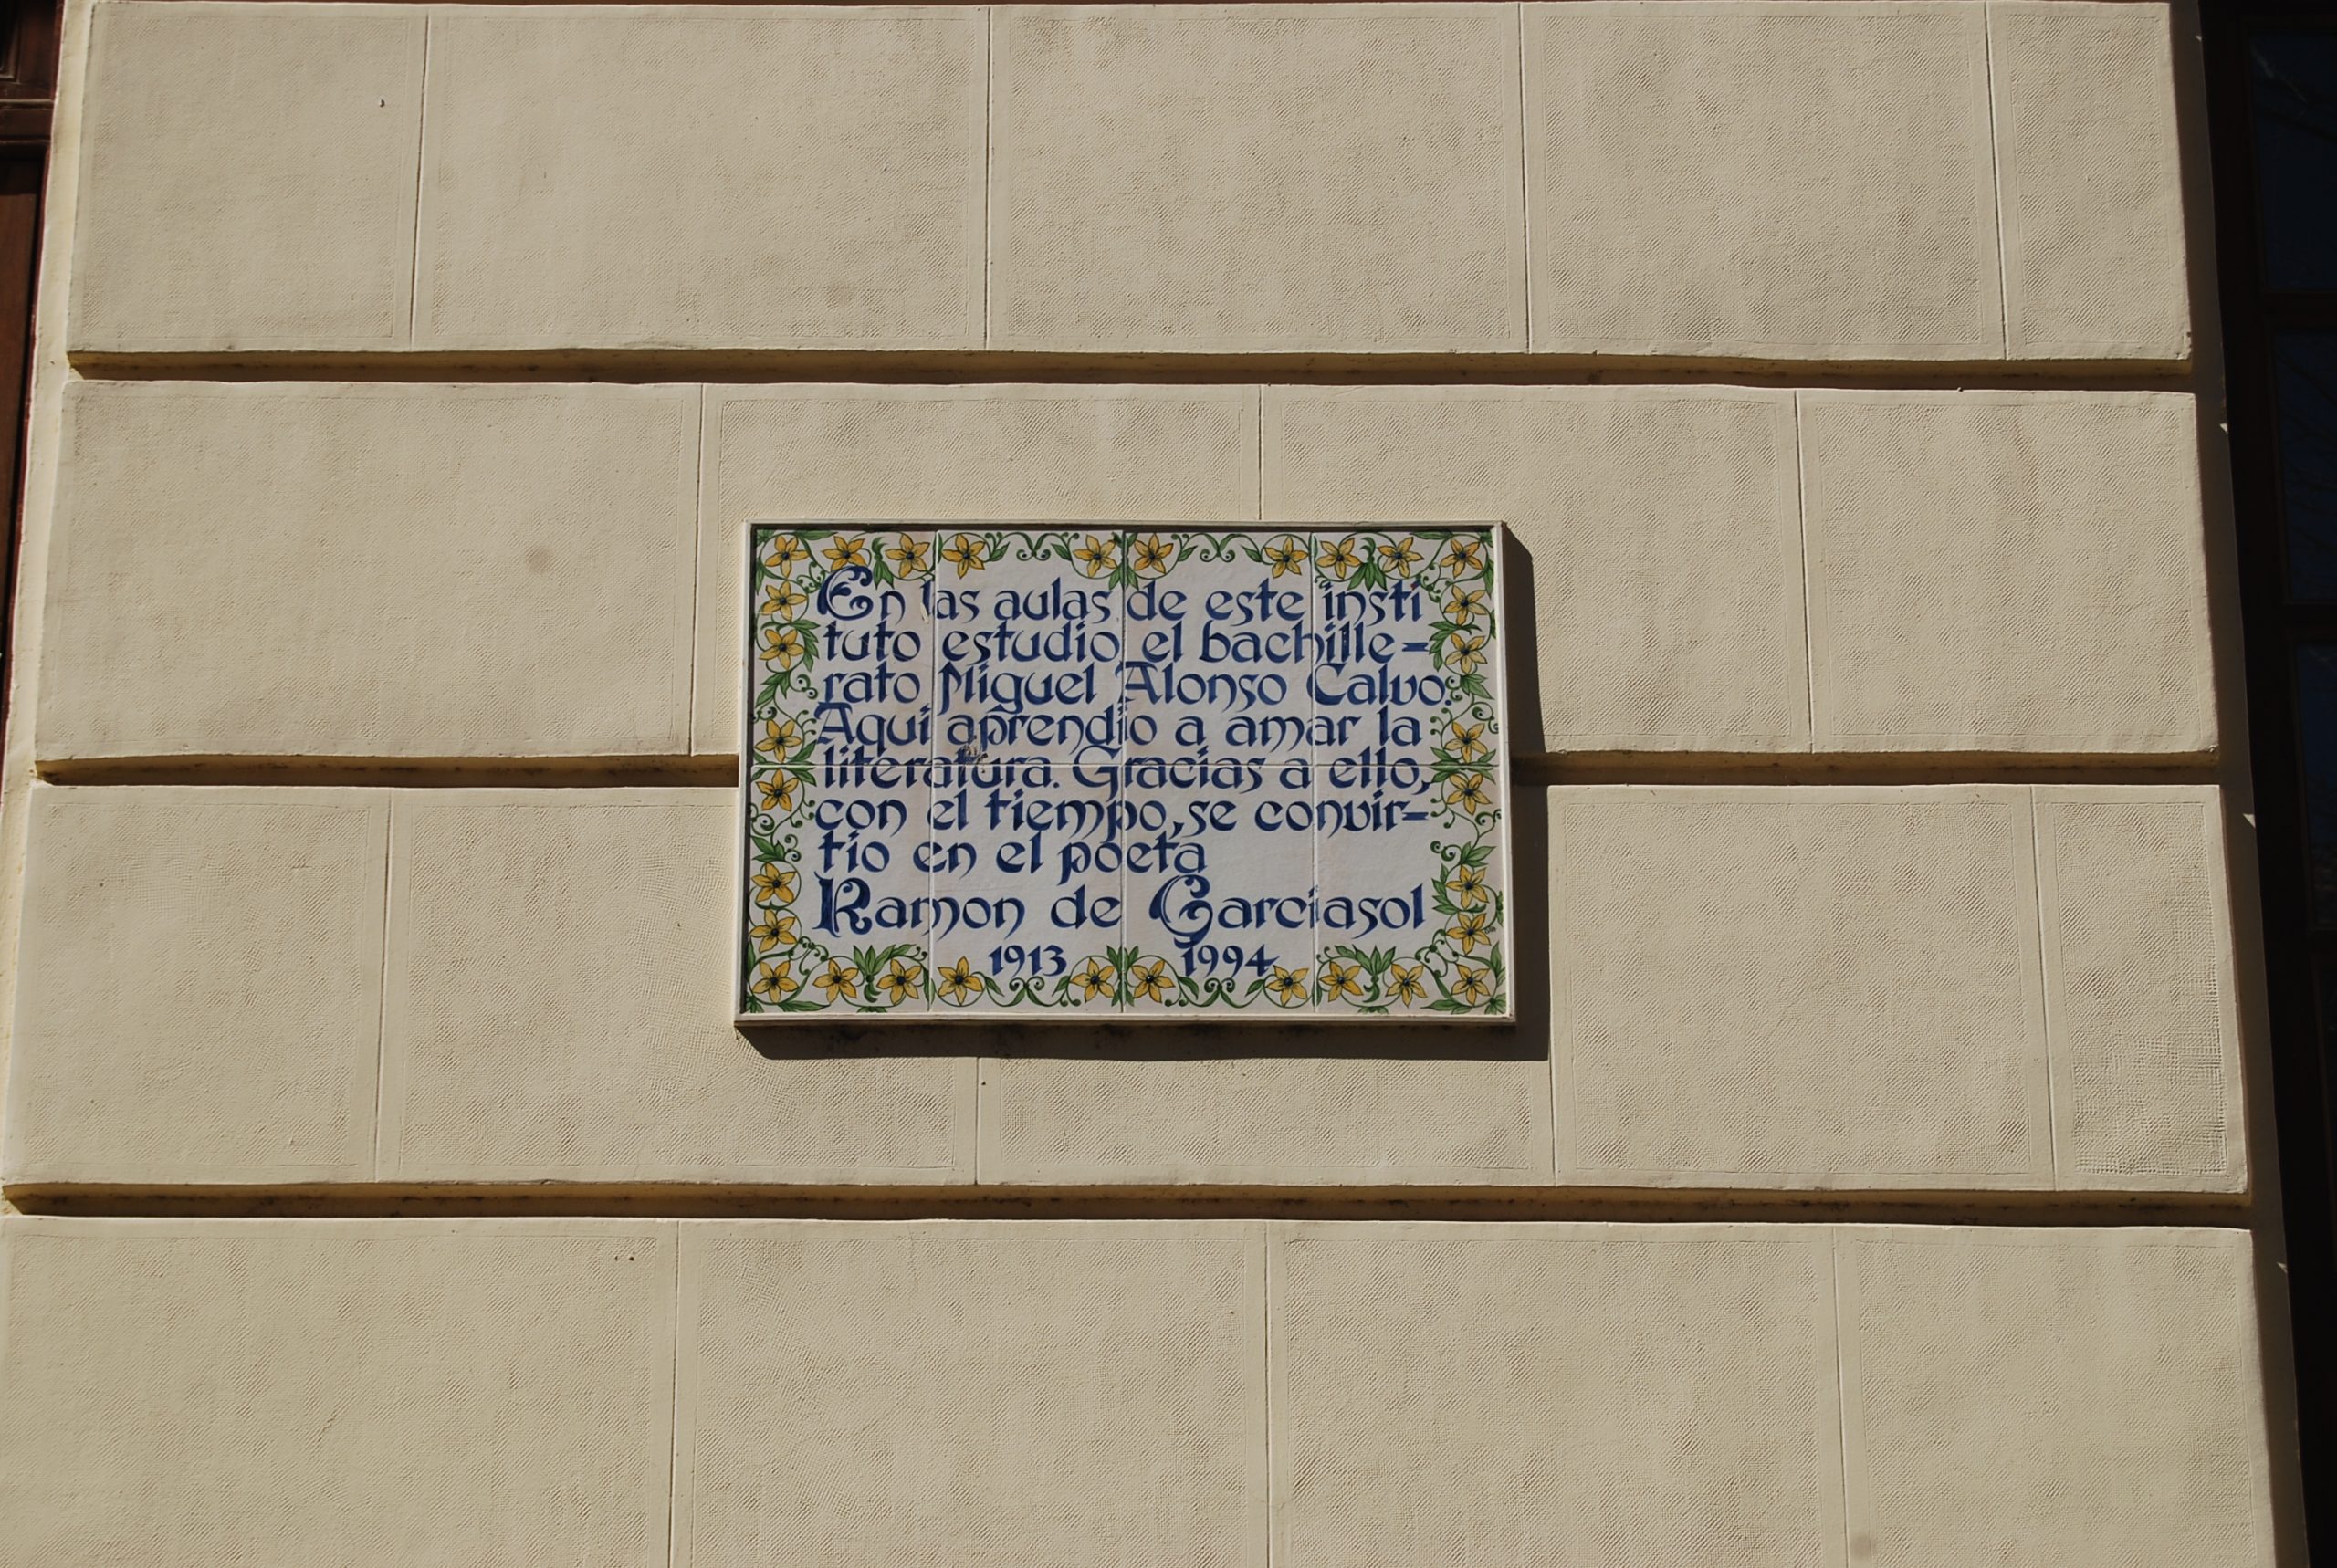 En las aulas de este insti
tuto estudio el bachille-
rato Miguel Alonso Calvo.
Aqui aprendio a amar la
literatura. Gracias a ello,
con el tiempo, se convir-
tio en el poeta
Ramon de Garciasol
1913 1994